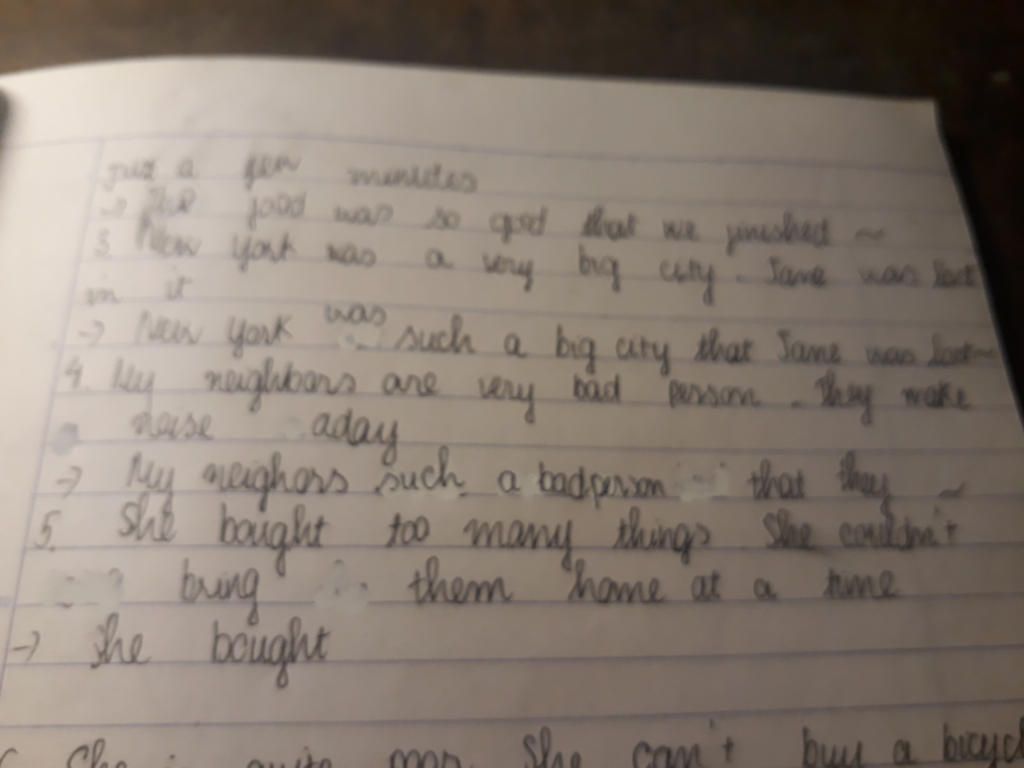 just a few minutes
→ The food was so good that we finished ~
3 New York was a very big city. Jane was lost
in it
→ New York was such a big city that Jane was lost~
4. My neighbors are very bad person. They make
noise aday
→ My neighors such a badperson that they ~
5. She bought too many things. She couldn't
bring them home at a time
→ She bought
She is quite She can't buy a